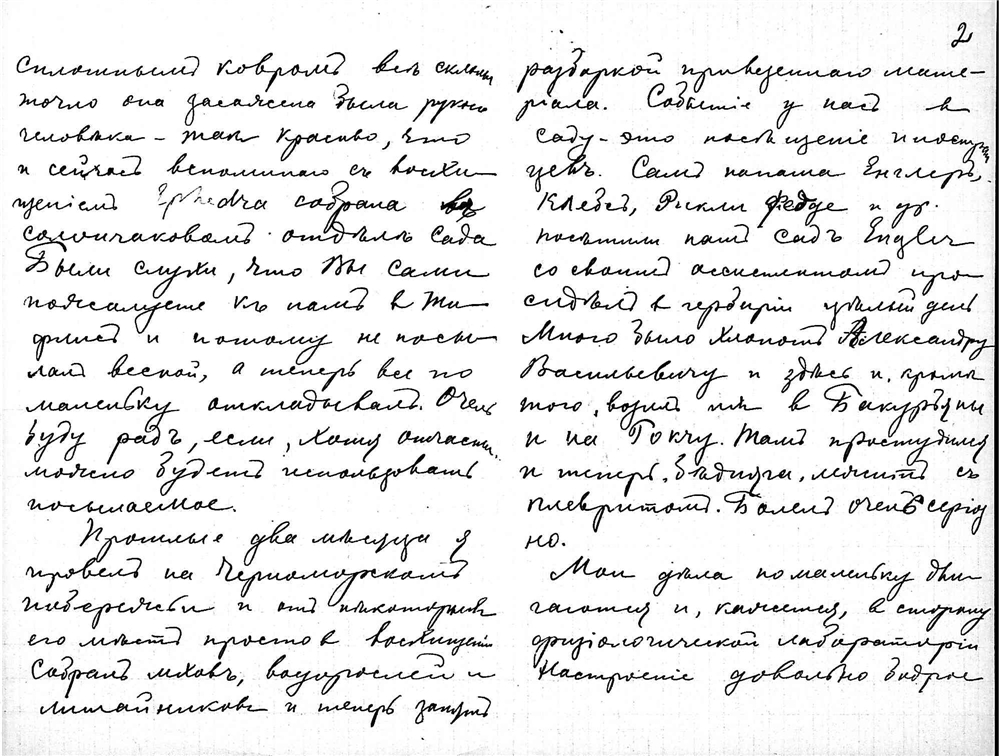 сплошнымъ ковромъ всѣ склоны
точно она засажена была рукою
человѣка – такъ красиво, что
и сейчасъ вспоминаю съ восхи
щеніемъ Ephedra собрана въ
солончаковомъ отдѣлѣ сада
Были слухи, что Вы сами
пожалуете къ намъ в Ти
флисъ и потому не посы
лалъ весной, а теперь все по
маленьку откладывалъ. Очень
буду радъ, если, хотя отчасти
можно будетъ использовать
посылаемое.
Прошлые два мѣсяца я
провелъ на Черноморскомъ
побережьи и отъ нѣкоторыхъ
его мѣстъ просто в восхищеніи
Собралъ мховъ, водорослей и
лишайниковъ и теперь занятъ
2
разборкой привезеннаго мате-
ріала. Событіе у насъ в
саду – это посѣщеніе иностран
цевъ. Самъ папаша Енглеръ,
Клебсъ, Рикли Федде и др.
посѣтили нашъ садъ Engler
со своимъ ассистентомъ про
сидѣлъ в гербаріи цѣлый день
Много было хлопотъ Александру
Васильевичу и здѣсь и, кромѣ
того, возилъ ихъ в Бакурьяны
и на Гокчу. Тамъ простудился
и теперь, бѣдняга, лежитъ съ
плевритомъ. Болелъ очень серіоз
но.
Мои дѣла помаленьку дви
гаются и, кажется, в сторону
физіологической лабораторіи
Настроеніе довольно бодрое